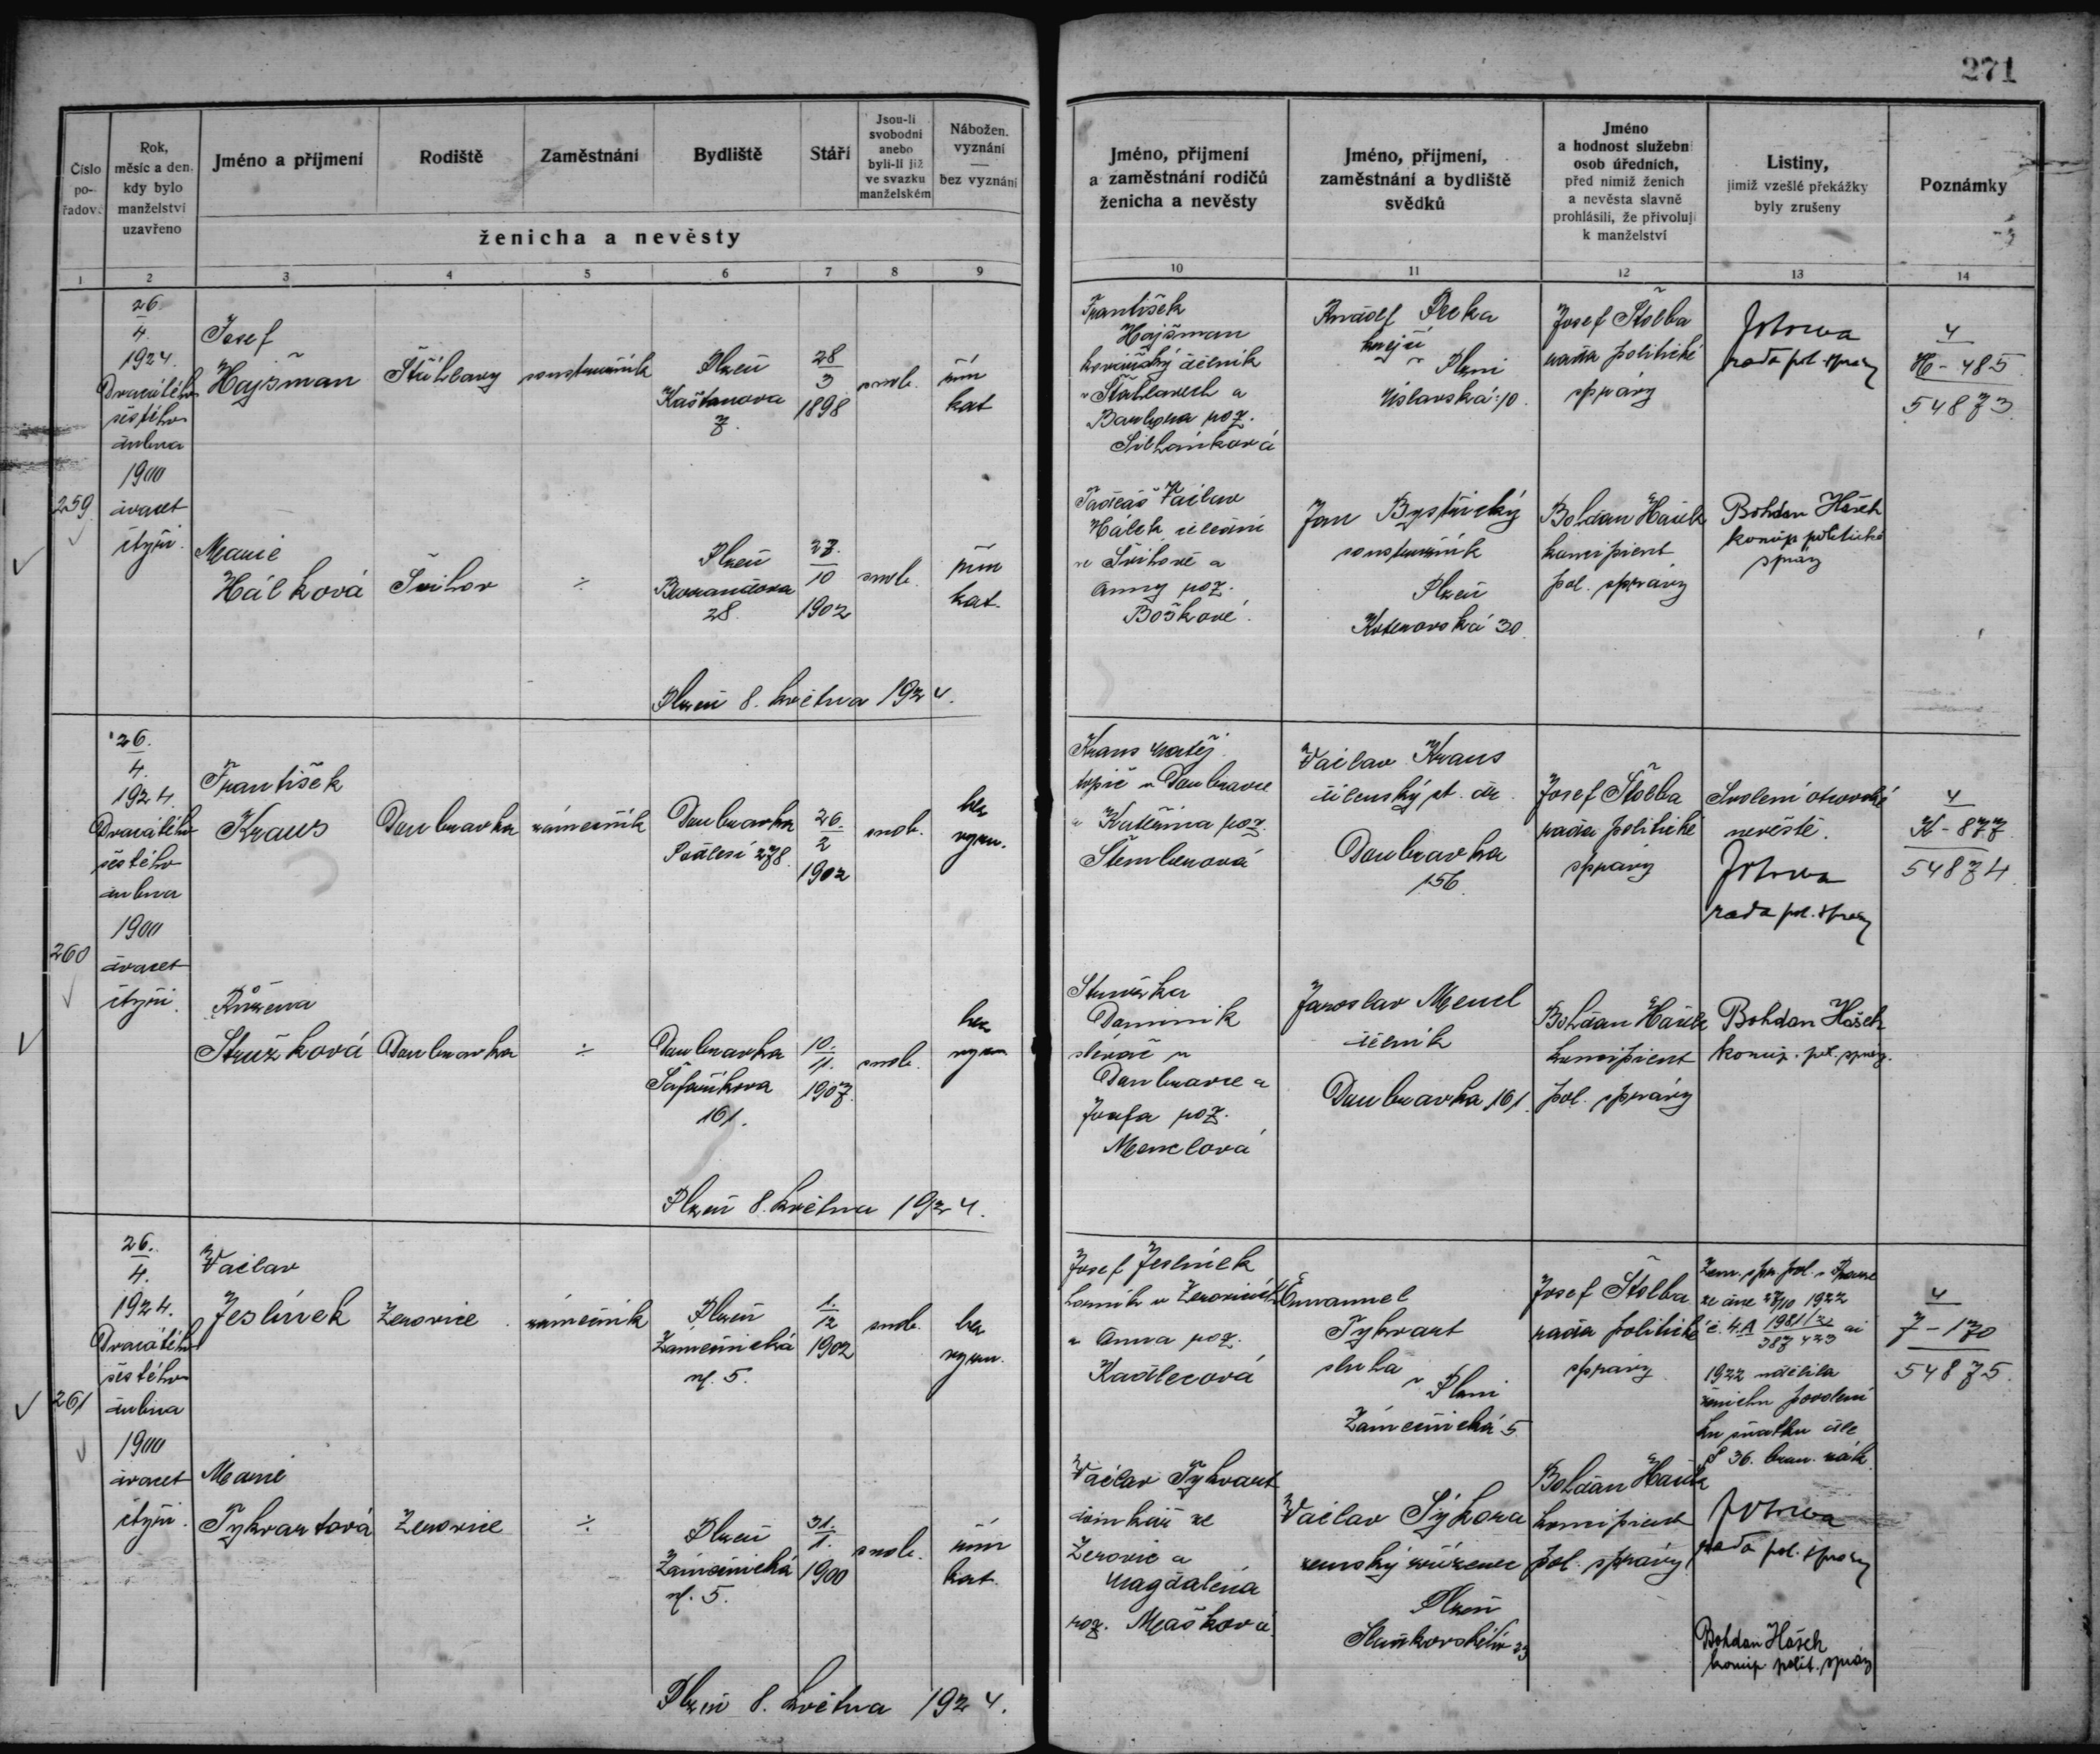 271
Číslo pořadov.
Rok, měsíc a den, kdy bylo manželství uzavřeno
Jméno a příjmení
Rodiště
Zaměstnání
Bydliště
Stáří
Jsou-li svobodni anebo byli-li již ve svazku manželském
Nábožen. vyznání — bez vyznání
ženicha a nevěsty
Jméno, příjmení a zaměstnání rodičů ženicha a nevěsty
Jméno, příjmení, zaměstnání a bydliště svědků
Jméno a hodnost služební osob úředních, před nimiž ženich a nevěsta slavně prohlásili, že přivolují k manželství
Listiny, jimiž vzešlé překážky byly zrušeny
Poznámky
1 2 3 4 5 6 7 8 9 10 11 12 13 14
259
26.
4.
1924.
Dvacátého
šestého
dubna
1900
dvacet
čtyři.
Josef
Hajšman
Šťáhlavy
soustružník
Plzeň
Kaštanova
7.
28
3
1898
svob.
řím
kat
František
Hajšman
kovářský dělník
v Šťáhlavech a
Barbora roz.
Sihlánková
krejčí
v Plzni
Úslavská 10.
Josef Štolba
rada politické
správy
rada pol. správy
4
H - 485.
54873.
Marie
Hálková
Švihov
÷
Plzeň
28.
27.
10
1902
svob.
řím
kat.
Tadeáš Václav
Hálek
ve Švihově a
Anny roz.
Boškové.
Jan Bystřický
soustružník
Plzeň
Koterovská 30.
Bohdan Hašek
koncipient
pol. správy
Bohdan Hašek
koncip. politické
správy
Plzeň 8. května 1924.
260
26.
4.
1924.
Dvacátého
šestého
dubna
1900
dvacet
čtyři.
František
Kraus
Doubravka
zámečník
Doubravka
Podlesí 278.
26.
2
1902
svob.
bez
vyzn.
Kraus Matěj
topič v Doubravce
a Kateřina roz.
Štemberová
Václav Kraus
Doubravka
156.
Josef Štolba
rada politické
správy
Svolení otcovské
nevěstě.
rada pol. správy
4
K - 877
54874.
Růžena
Stružková
Doubravka
÷
Doubravka
Šafaříkova
161.
10.
11.
1907.
svob.
bez
vyzn
Stružka
Dominik
slévač v
Doubravce a
Josefa roz.
Menclová
Jaroslav Mencl
dělník
Doubravka 161.
Bohdan Hašek
koncipient
pol. správy
Bohdan Hašek
koncip. pol. správy.
Plzeň 8. května 1924.
261
26.
4.
1924.
Dvacátého
šestého
dubna
1900
dvacet
čtyři.
Václav
Jeslínek
Žerovice
zámečník
Plzeň
Zámečnická
ul. 5.
1.
12
1902
svob.
bez
vyzn.
Josef Jeslínek
horník v Žerovicích
a Anna roz.
Kadlecová
Emanuel
Tykvart
sluha
v Plzni
Zámečnická 5.
Josef Štolba
rada politické
správy
Zem. spr. pol. v Praze
ze dne 27/10 1922
1922 udělila
ženichu povolení
ku sňatku dle
§ 36. bran. zák.
rada pol. správy
4
J - 170
54875.
Marie
Tykvartová
Žerovice
÷
Plzeň
Zámečnická
ul. 5.
31.
1.
1900
svob.
řím
kat.
Václav Tykvart
domkář ze
Žerovic a
Magdalena
roz. Mašková.
Václav Sýkora
zemský zřízenec
Plzeň
Bohdan Hašek
koncipient
pol. správy
Bohdan Hašek
koncip. polit. správy
Plzeň 8. května 1924.